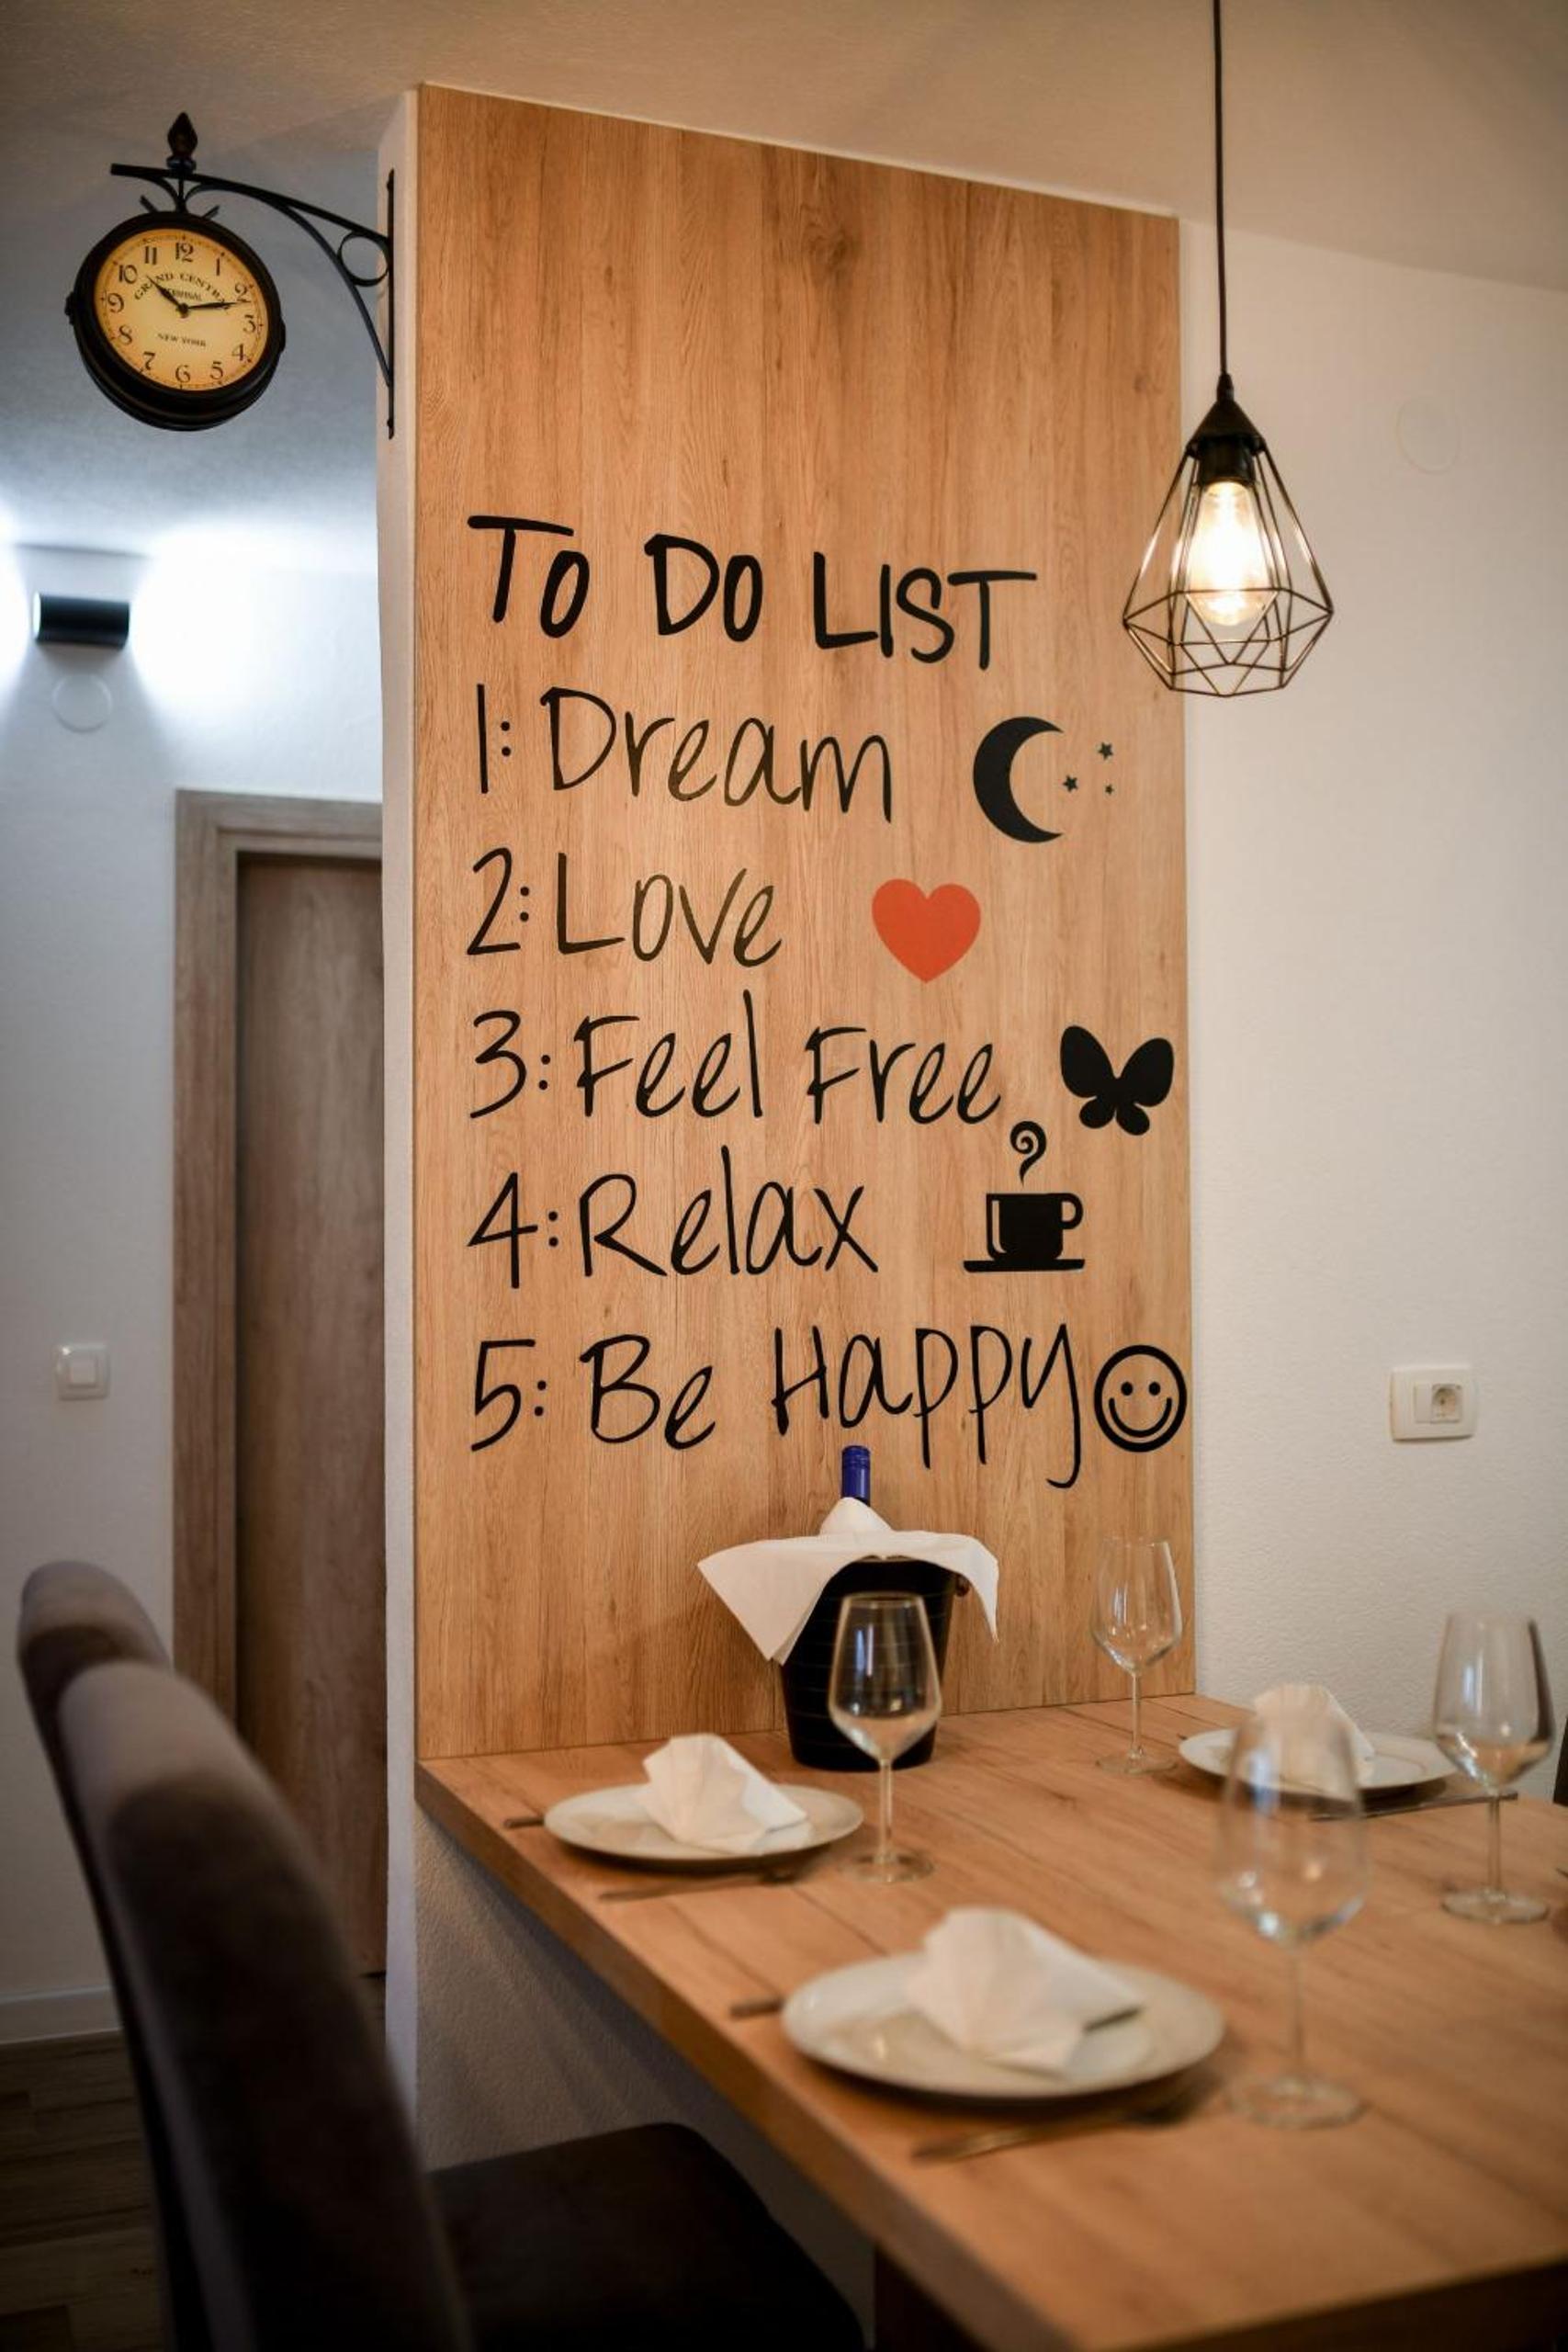 11 12 1
10 2
GRAND CENTRAL
TERMINAL
9 3
NEW YORK
8 4
7 6 5
TO DO LIST
1: Dream
2: Love
3: Feel Free
4: Relax
5: Be Happy